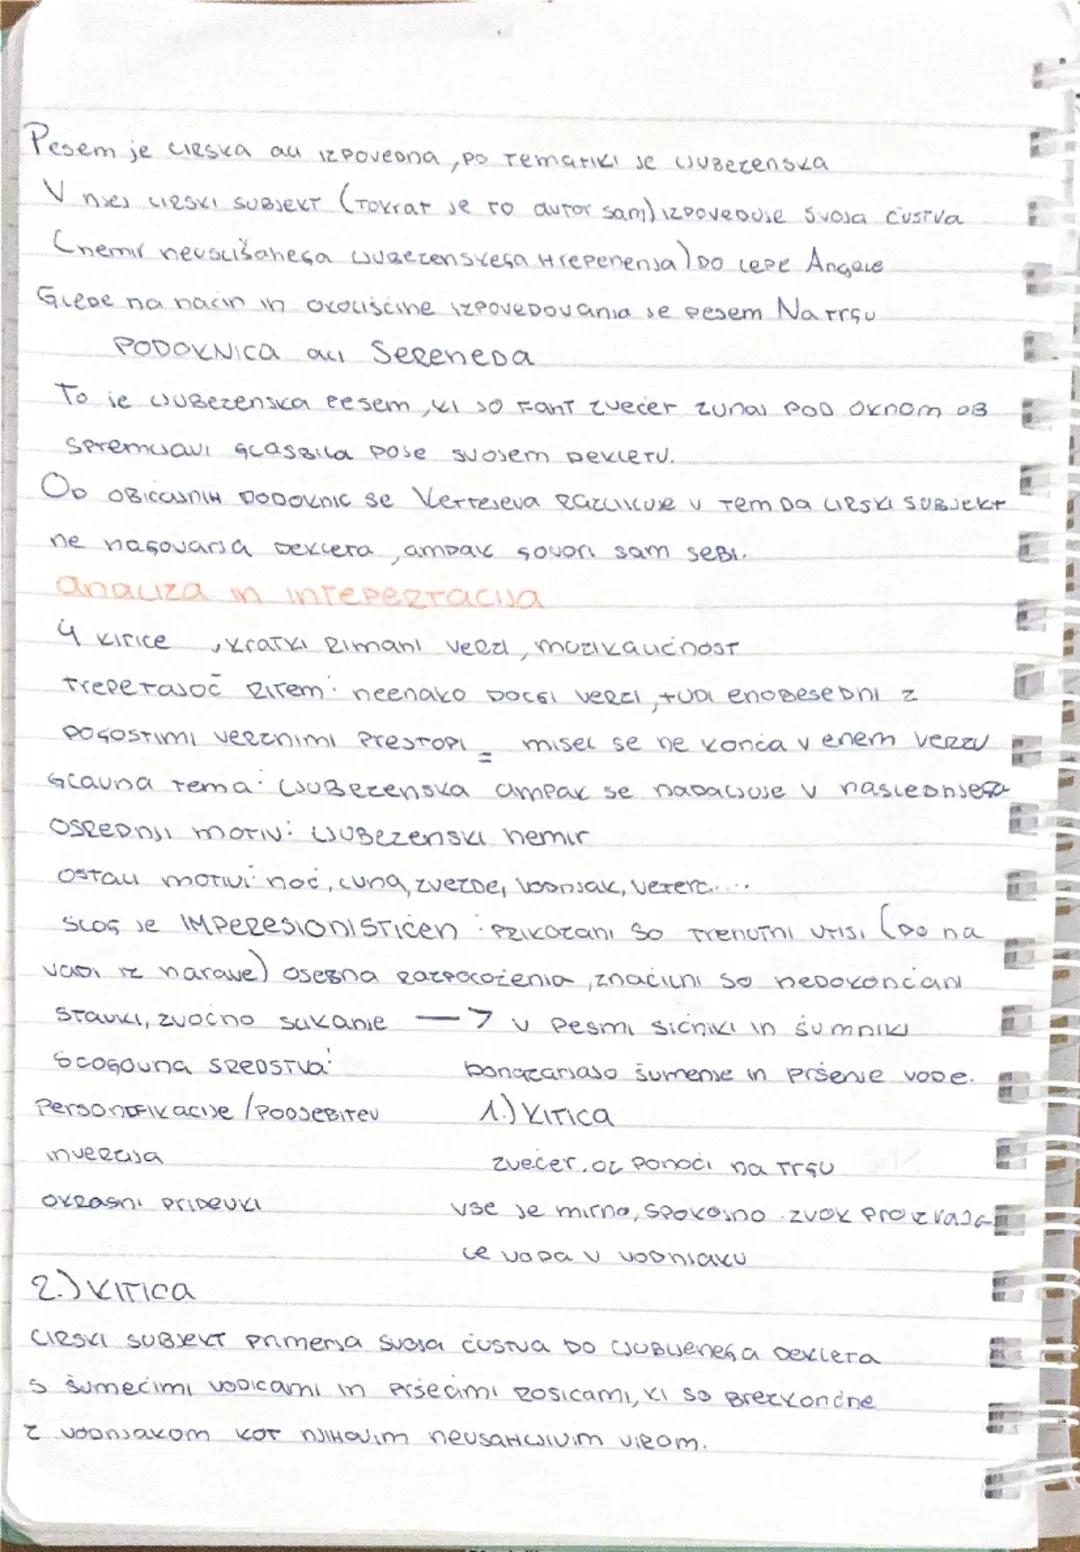 Pesem je lirska ali izpovedna, po tematiki je ljubezenska
V njej lirski subjekt (tokrat je to avtor sam) izpoveduje svoja čustva
(nemir neuslišanega ljubezenskega hrepenenja) do lepe Angele
Glede na način in okoliščine izpovedovanja je pesem Na trgu
PODOKNICA ali Sereneda
To je ljubezenska pesem, ki jo fant zvečer zunaj pod oknom ob
spremljavi glasbila poje svojem dekletu.
Od običajnih podoknic se Kettejeva razlikuje v tem da lirski subjekt
ne nagovarja dekleta, ampak govori sam sebi.
analiza in intepertacija
4 kitice, kratki rimani verzi, muzikaličnost
trepetajoč ritem: neenako dolgi verzi, tudi enobesedni z
pogostimi verznimi prestopi = misel se ne konča v enem verzu
Glavna tema: ljubezenska ampak se nadaljuje v naslednjega
osrednji motiv: ljubezenski nemir
ostali motivi: noč, luna, zvezde, vodnjak, veterc....
slog je IMPERESIONISTIČEN: prikazani so trenutni vtisi (po na
vadi iz narave) osebna razpoloženja, značilni so nedokončani
stavki, zvočno slikanje → v pesmi sičniki in šumniki
slogovna sredstva: ponazarjajo šumenje in pršenje vode.
personifikacije / poosebitev 1.) KITICA
inverzija zvečer oz ponoči na trgu
okrasni pridevki vse je mirno, spokojno zvok proizvaja
le voda v vodnjaku
2.) KITICA
lirski subjekt primerja svoja čustva do ljubljenega dekleta
s šumečimi vodicami in pršečimi rosicami, ki so brezkončne
z vodnjakom kot njihovim neusahljivim virom.